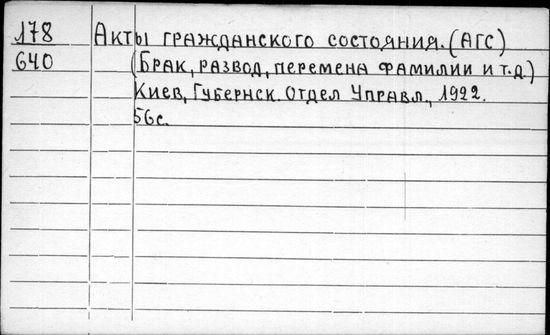 178 Акты гражданского состояния. (АГС)
640 (Брак, развод, перемена фамилии и т.д.)
Киев, Губернск. Отдел Управл., 1922.
56с.